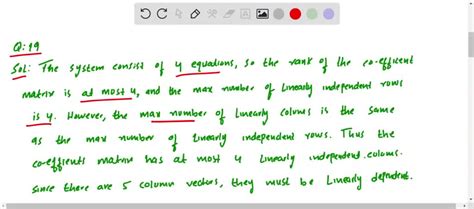 Q:19
Sol: The system consist of 4 equations, so the rank of the co-efficent
matrix is at most 4, and the max number of linearly independent rows
is 4. However, the max number of linearly colums is the same
as the max number of linearly independent rows. Thus the
co-effients matrix has at most 4 linearly independent colums.
since there are 5 column vectors, they must be linearly dependent.